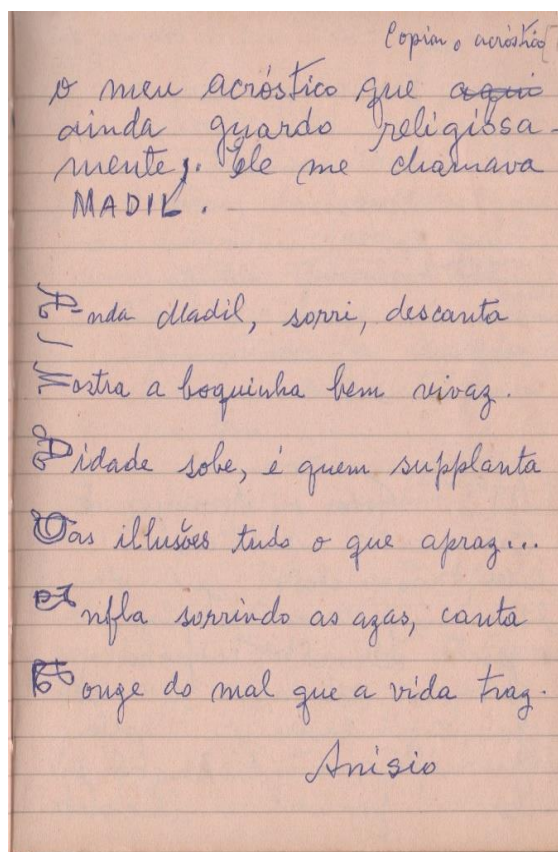 Copiar o acróstico
o meu acróstico que aqui
ainda guardo religiosa-
mente. Ele me chamava
MADIL.
Ainda Madil, sorri, descanta
Mostra a boquinha bem vivaz.
A idade sobe, é quem supplanta
Das illusões tudo o que apraz...
Infla sorrindo as azas, canta
Longe do mal que a vida traz.
Anisio